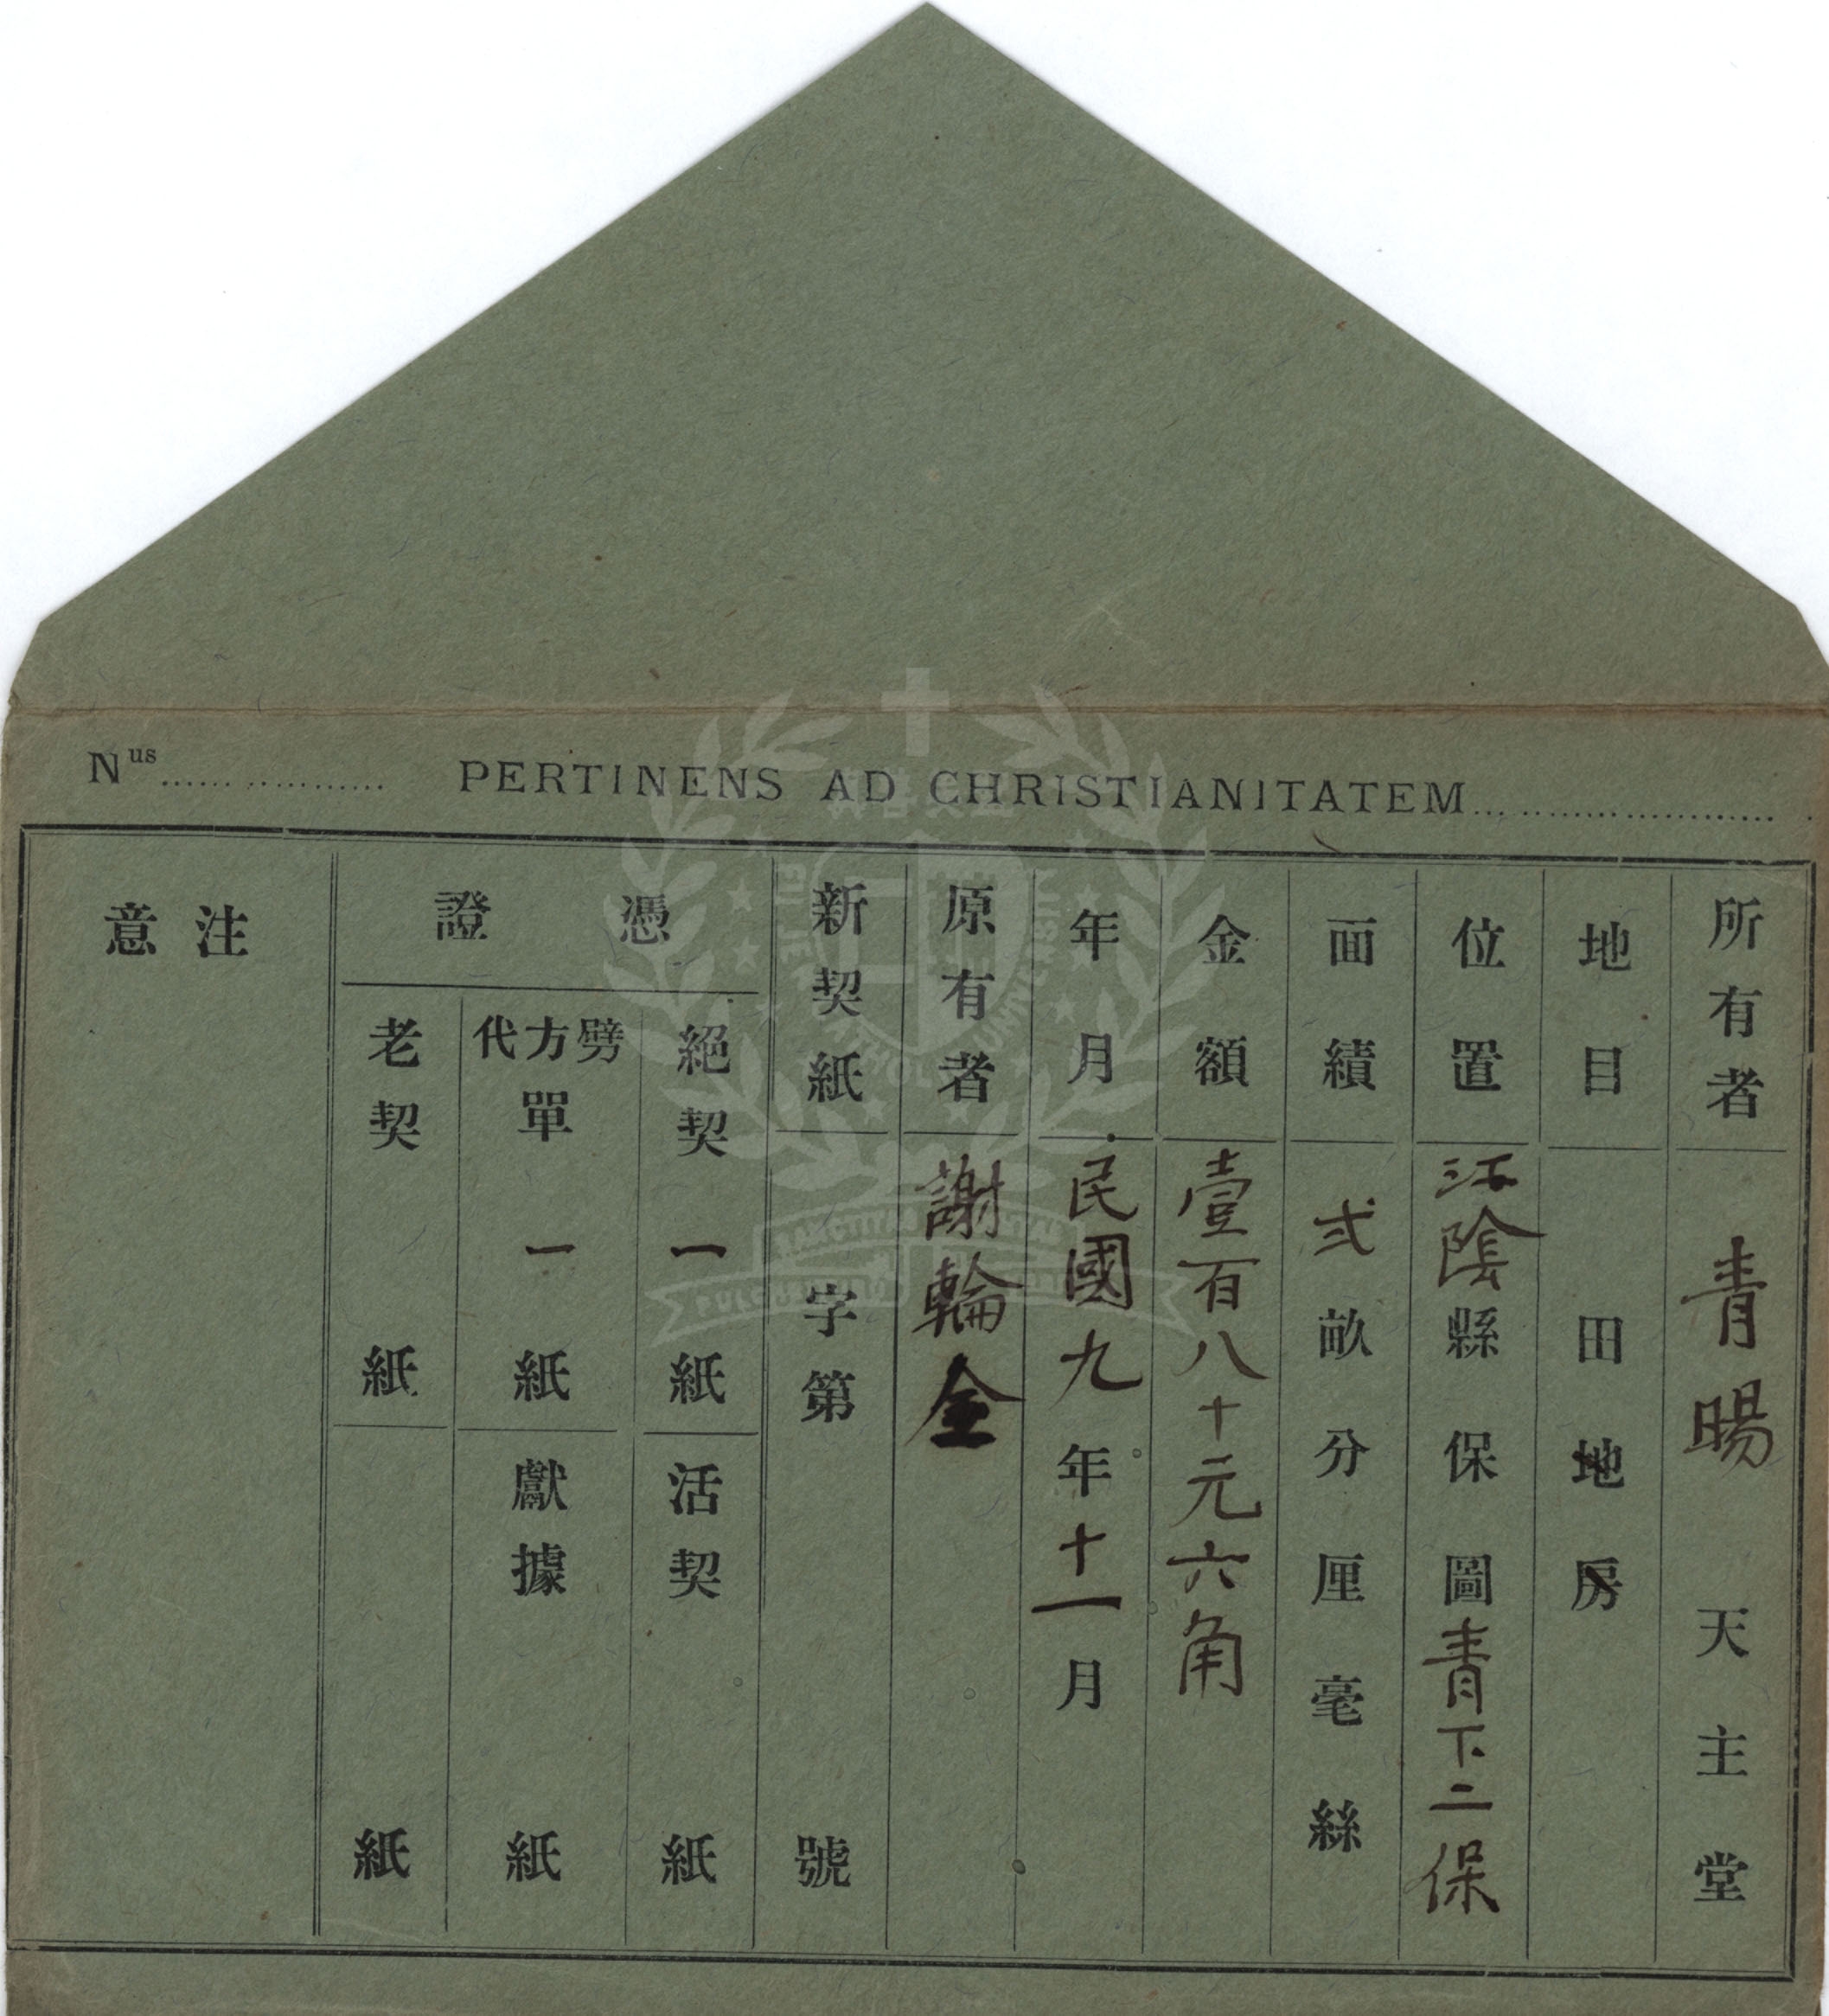 Nus.................. PERTINENS AD CHRISTIANITATEM........................
所有者 青暘 天主堂
地目 田地房
位置 江陰縣保圖青下二保
面績 弍畝分厘毫絲
金額 壹百八十元六角
年月 民國九年十一月
原有者 謝輪金
新契紙 字第 號
憑證
絕契 一紙
活契 紙
劈方代單 一紙
獻據 紙
老契 紙
紙
注意